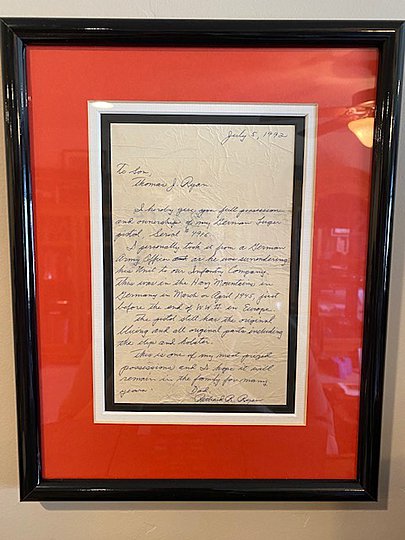 July 5, 1992
To Son,
Thomas J. Ryan
I hereby give you full possession
and ownership of my German Luger
pistol Serial # 4910.
I personally took it from a German
Army Officer as he was surrendering
his Unit to our Infantry Company.
this was in the Harz Mountains in
Germany in March or April 1945 just
before the end of WW II in Europe.
the pistol still has the original
bluing and all original parts including
the clip and holster.
this is one of my most prized
possessions and I hope it will
remain in the family for many
years.
Dad
Richard R. Ryan